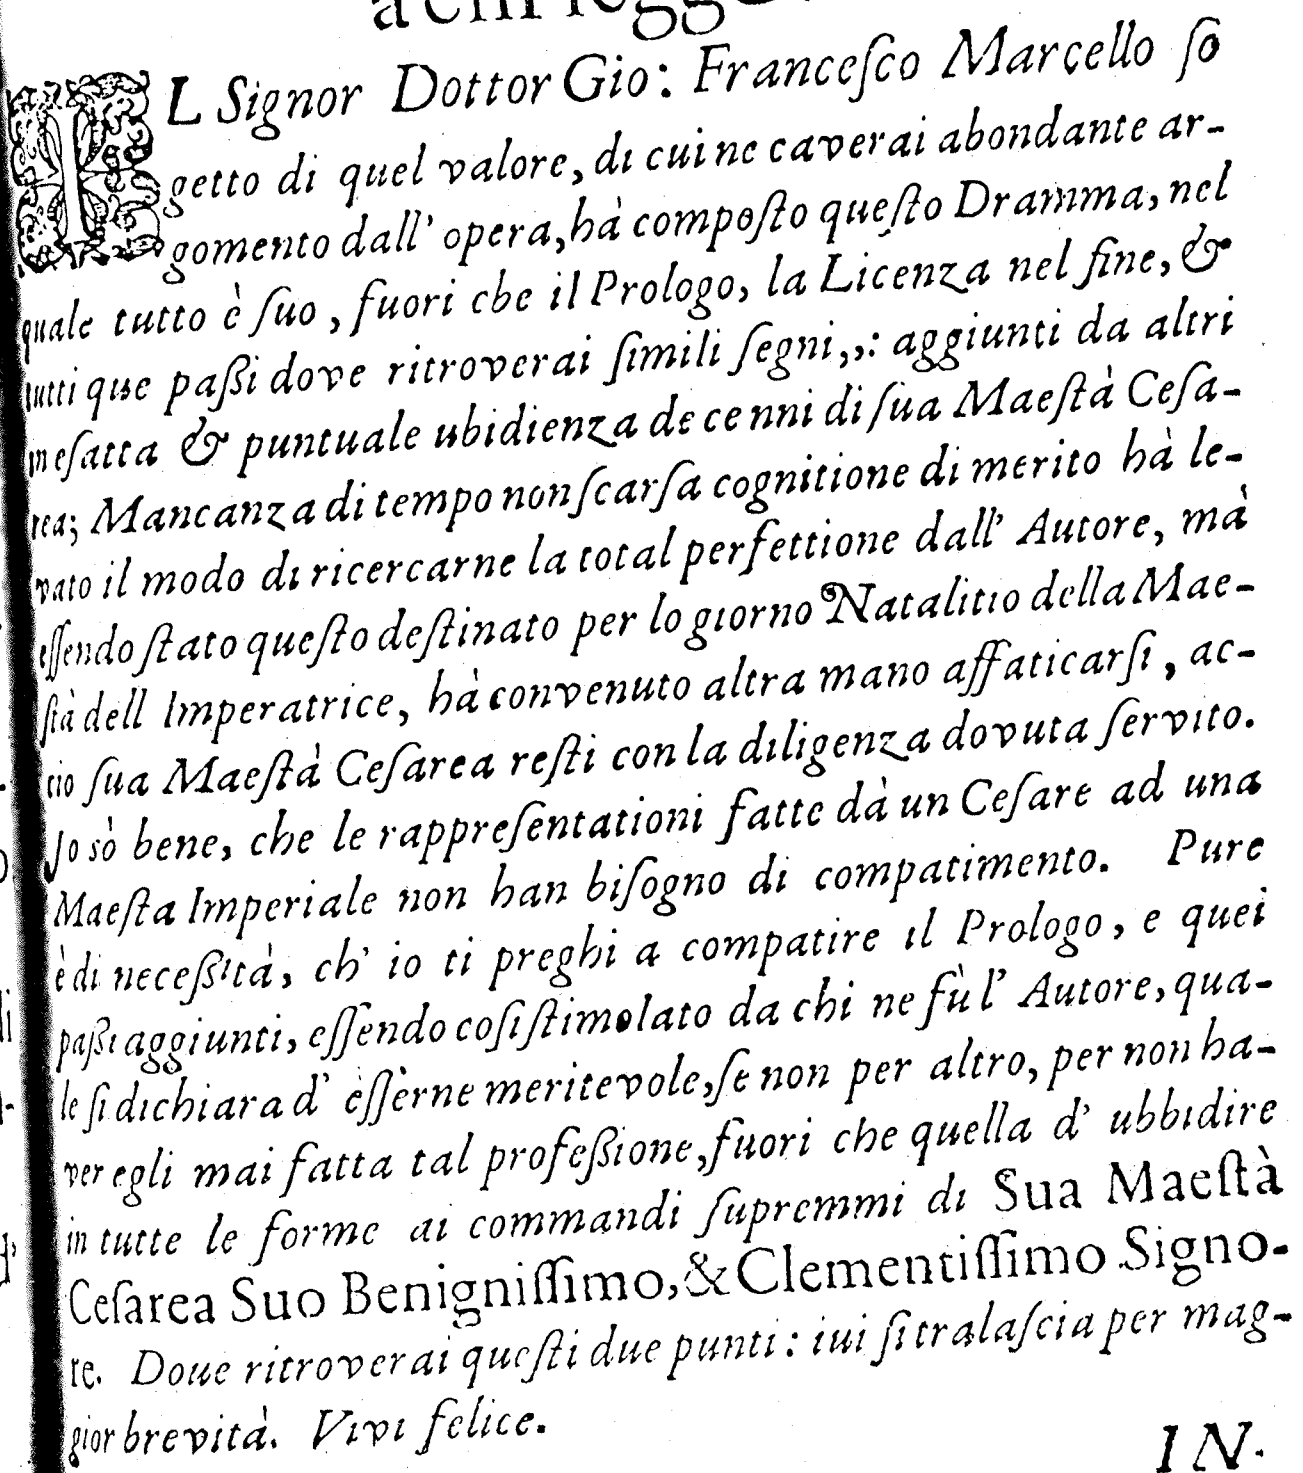 a chi legge.
IL Signor Dottor Gio: Franceſco Marcello ſo
getto di quel valore, di cui ne caverai abondante ar-
gomento dall' opera, hà compoſto queſto Dramma, nel
quale tutto è ſuo, fuori che il Prologo, la Licenza nel fine, &
tutti que paßi dove ritroverai ſimili ſegni,,: aggiunti da altri
in eſatta & puntuale ubidienza de cenni di ſua Maeſtà Ceſa-
rea; Mancanza di tempo non ſcarſa cognitione di merito hà le-
vato il modo di ricercarne la total perfettione dall' Autore, mà
eſſendo ſtato queſto deſtinato per lo giorno Natalitio della Mae-
ſtà dell Imperatrice, hà convenuto altra mano affaticarſi, ac-
cio ſua Maeſtà Ceſarea reſti con la diligenza dovuta ſervito.
Jo sò bene, che le rappreſentationi fatte dà un Ceſare ad una
Maeſta Imperiale non han biſogno di compatimento. Pure
è di neceßità, ch' io ti preghi a compatire il Prologo, e quei
paßi aggiunti, eſſendo coſi ſtimolato da chi ne fù l' Autore, qua-
le ſi dichiara d' èſſèrne meritevole, ſe non per altro, per non ha-
ver egli mai fatta tal profeßione, fuori che quella d' ubbidire
in tutte le forme ai commandi ſupremmi di Sua Maeſtà
Ceſarea Suo Benigniſſimo, & Clementiſſimo Signo-
re. Doue ritroverai queſti due punti: iui ſi tralaſcia per mag-
gior brevità. Vivi felice.
IN-